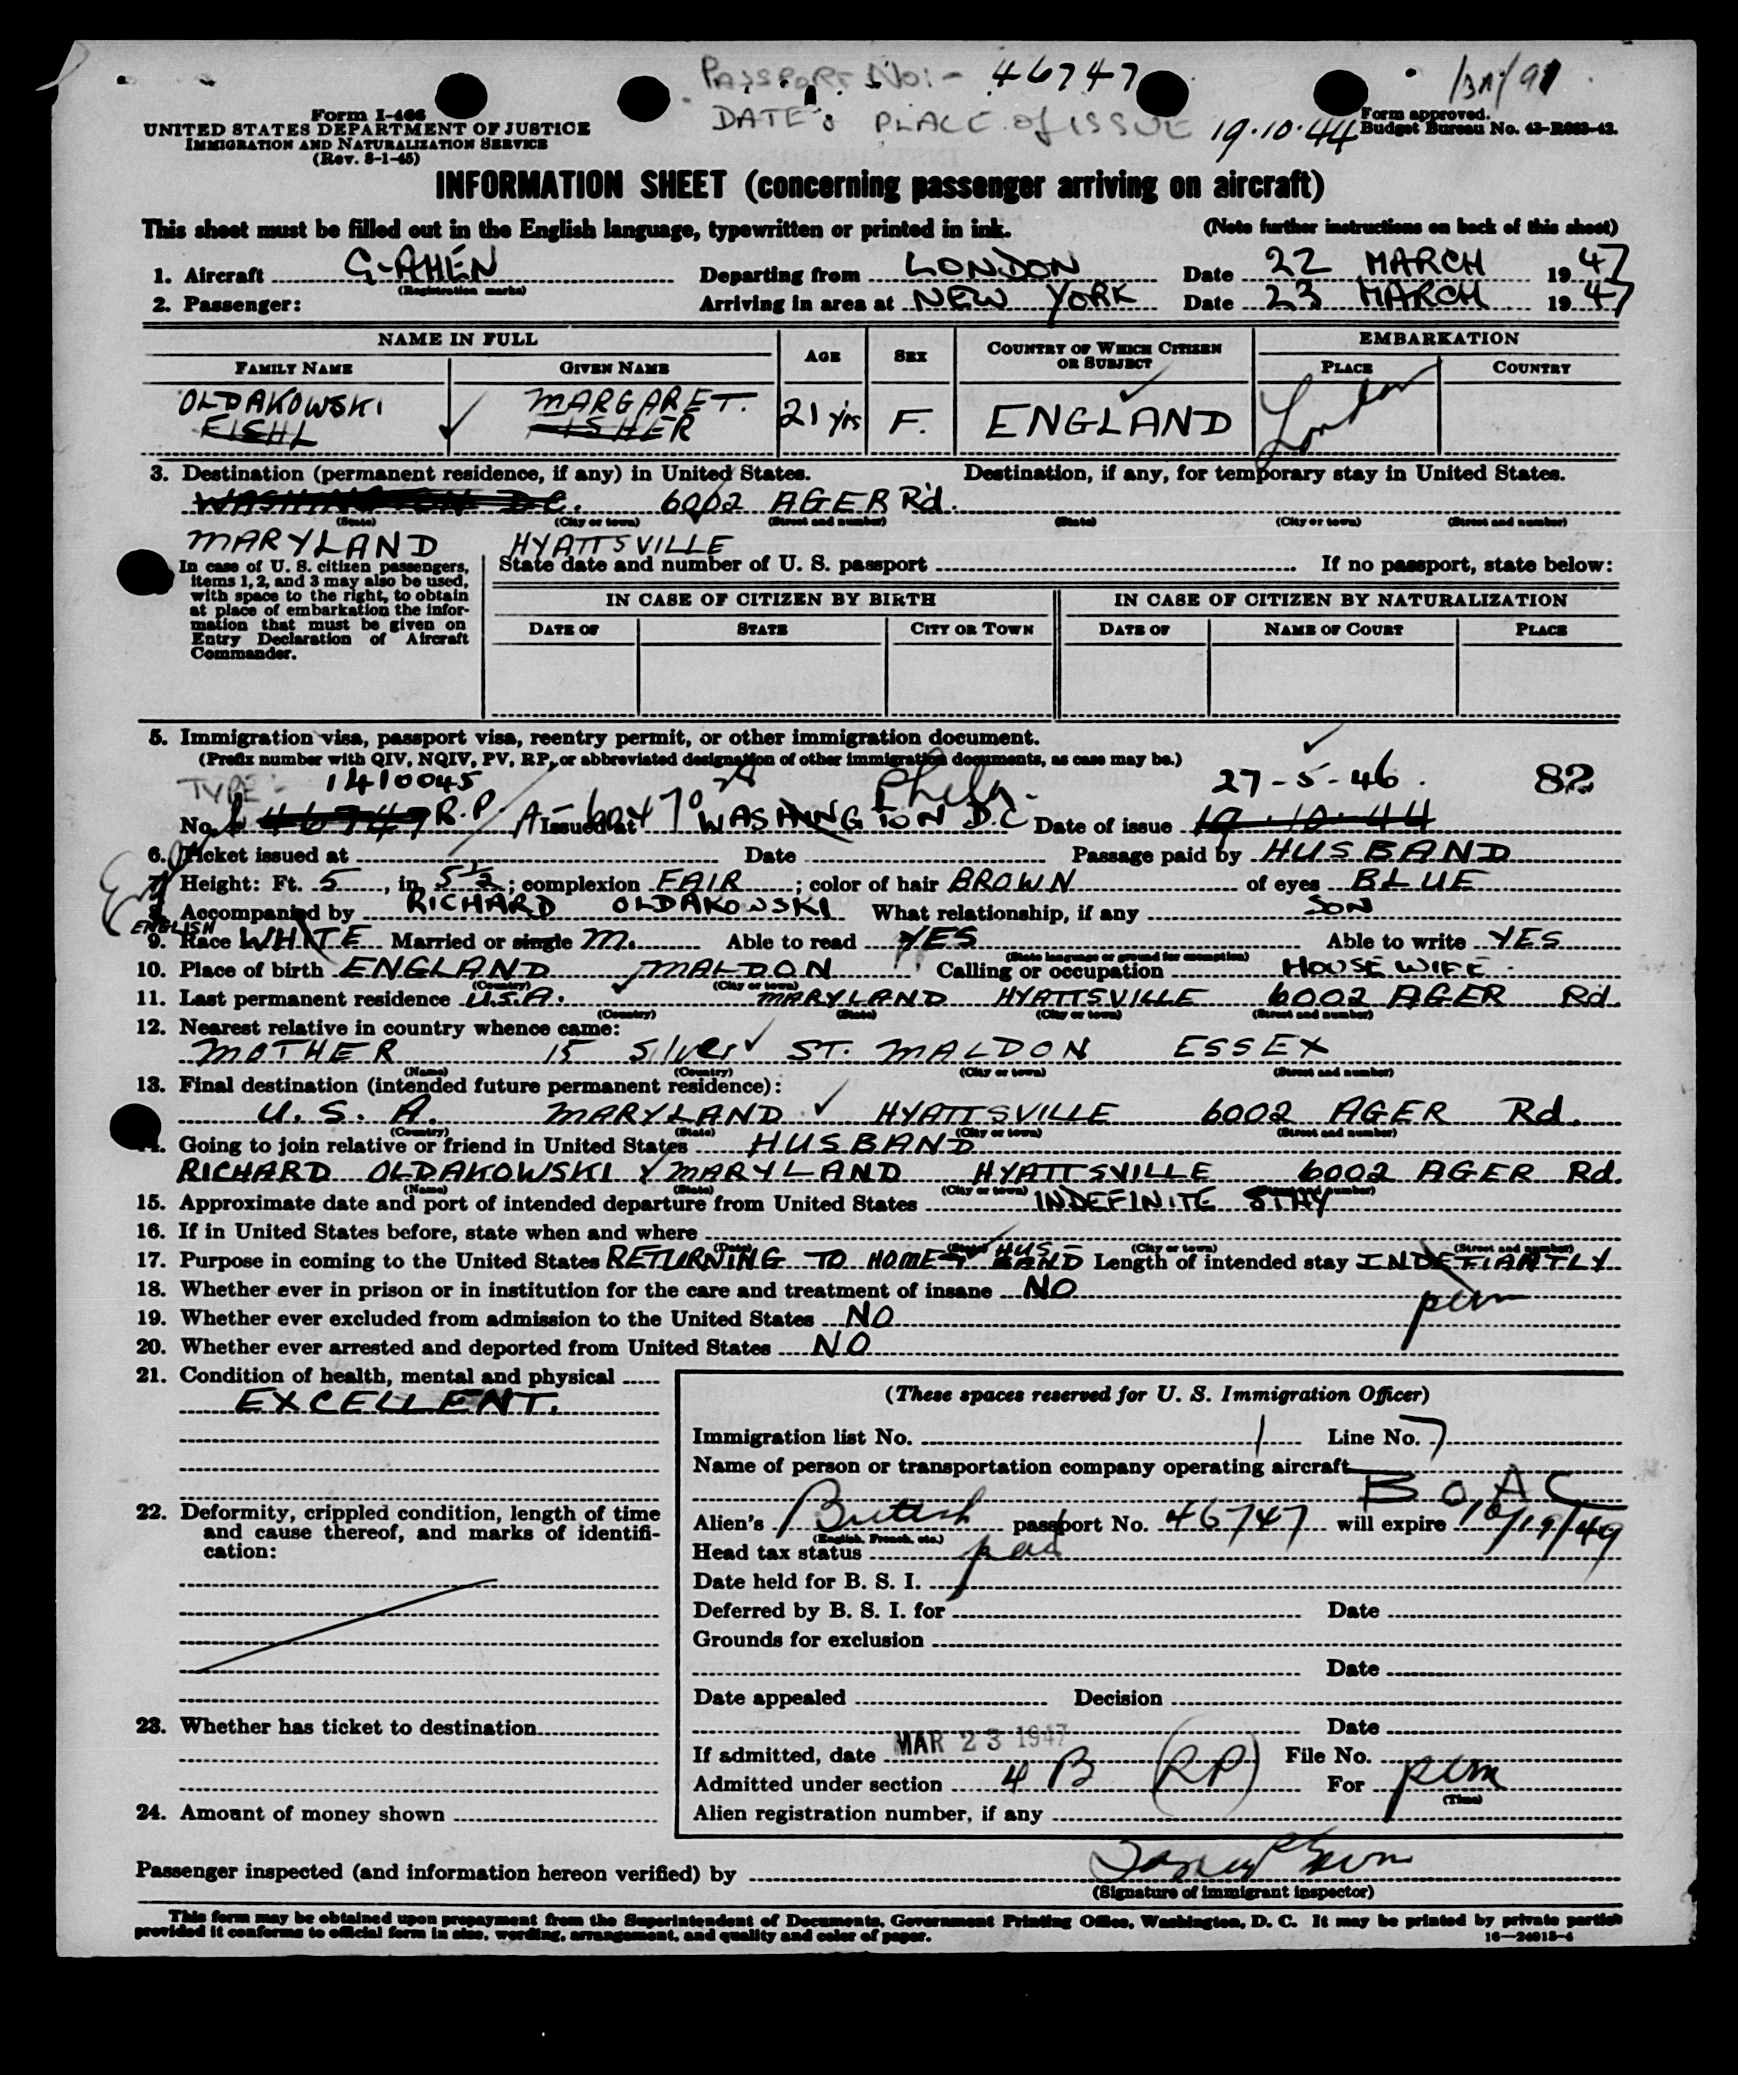 PASSPORT No:- 46747
DATE: PLACE of ISSUE 19.10.44
Form I-466
UNITED STATES DEPARTMENT OF JUSTICE
IMMIGRATION AND NATURALIZATION SERVICE
(Rev. 8-1-45)
Form approved.
Budget Bureau No. 43-R083-43.
INFORMATION SHEET (concerning passenger arriving on aircraft)
This sheet must be filled out in the English language, typewritten or printed in ink. (Note further instructions on back of this sheet)
1. Aircraft G-AHEN Departing from LONDON Date 22 MARCH 1947
(Registration marks)
2. Passenger: Arriving in area at NEW YORK Date 23 MARCH 1947
NAME IN FULL AGE SEX COUNTRY OF WHICH CITIZEN OR SUBJECT EMBARKATION
FAMILY NAME GIVEN NAME PLACE COUNTRY
OLDAKOWSKI MARGARET. 21 yrs F. ENGLAND London
3. Destination (permanent residence, if any) in United States. Destination, if any, for temporary stay in United States.
WASHINGTON DC. 6002 AGER Rd.
(State) (City or town) (Street and number) (State) (City or town) (Street and number)
MARYLAND HYATTSVILLE
In case of U. S. citizen passengers, items 1, 2, and 3 may also be used, with space to the right, to obtain at place of embarkation the information that must be given on Entry Declaration of Aircraft Commander.
State date and number of U. S. passport If no passport, state below:
IN CASE OF CITIZEN BY BIRTH IN CASE OF CITIZEN BY NATURALIZATION
DATE OF STATE CITY OR TOWN DATE OF NAME OF COURT PLACE
5. Immigration visa, passport visa, reentry permit, or other immigration document.
(Prefix number with QIV, NQIV, PV, RP, or abbreviated designation of other immigration documents, as case may be.)
TYPE:- 1410045 Phila. 27-5-46. 82
No. 46747 R.P. Issued at WASHINGTON D.C Date of issue 19.10.44
6. Ticket issued at Date Passage paid by HUSBAND
7. Height: Ft. 5, in. 5½; complexion FAIR; color of hair BROWN of eyes BLUE
8. Accompanied by RICHARD OLDAKOWSKI What relationship, if any SON
ENGLISH
9. Race WHITE Married or single M. Able to read YES Able to write YES
(State language or ground for exemption)
10. Place of birth ENGLAND MALDON Calling or occupation HOUSEWIFE.
(Country) (City or town)
11. Last permanent residence U.S.A. MARYLAND HYATTSVILLE 6002 AGER Rd.
(Country) (State) (City or town) (Street and number)
12. Nearest relative in country whence came:
MOTHER 15 Silver ST. MALDON ESSEX
(Name) (Country) (City or town) (Street and number)
13. Final destination (intended future permanent residence):
U.S.A. MARYLAND HYATTSVILLE 6002 AGER Rd.
(Country) (State) (City or town) (Street and number)
14. Going to join relative or friend in United States HUSBAND
RICHARD OLDAKOWSKI MARYLAND HYATTSVILLE 6002 AGER Rd.
(Name) (State) (City or town) (Street and number)
15. Approximate date and port of intended departure from United States INDEFINITE STAY
16. If in United States before, state when and where
(Date) (State) (City or town) (Street and number)
17. Purpose in coming to the United States RETURNING TO HOME & HUSBAND Length of intended stay INDEFIANTLY
perm
18. Whether ever in prison or in institution for the care and treatment of insane NO
19. Whether ever excluded from admission to the United States NO
20. Whether ever arrested and deported from United States NO
21. Condition of health, mental and physical
EXCELLENT.
22. Deformity, crippled condition, length of time and cause thereof, and marks of identification:
23. Whether has ticket to destination
24. Amount of money shown
(These spaces reserved for U. S. Immigration Officer)
Immigration list No. 1 Line No. 7
Name of person or transportation company operating aircraft
BOAC
Alien's British passport No. 46747 will expire 10/19/49
(English, French, etc.)
Head tax status pad
Date held for B. S. I.
Deferred by B. S. I. for Date
Grounds for exclusion
Date
Date appealed Decision
Date
If admitted, date MAR 23 1947 File No.
Admitted under section 4 B (RP) For perm
(Time)
Alien registration number, if any
Passenger inspected (and information hereon verified) by
(Signature of immigrant inspector)
This form may be obtained upon prepayment from the Superintendent of Documents, Government Printing Office, Washington, D. C. It may be printed by private parties
provided it conforms to official form in size, wording, arrangement, and quality and color of paper. 16—24913-4